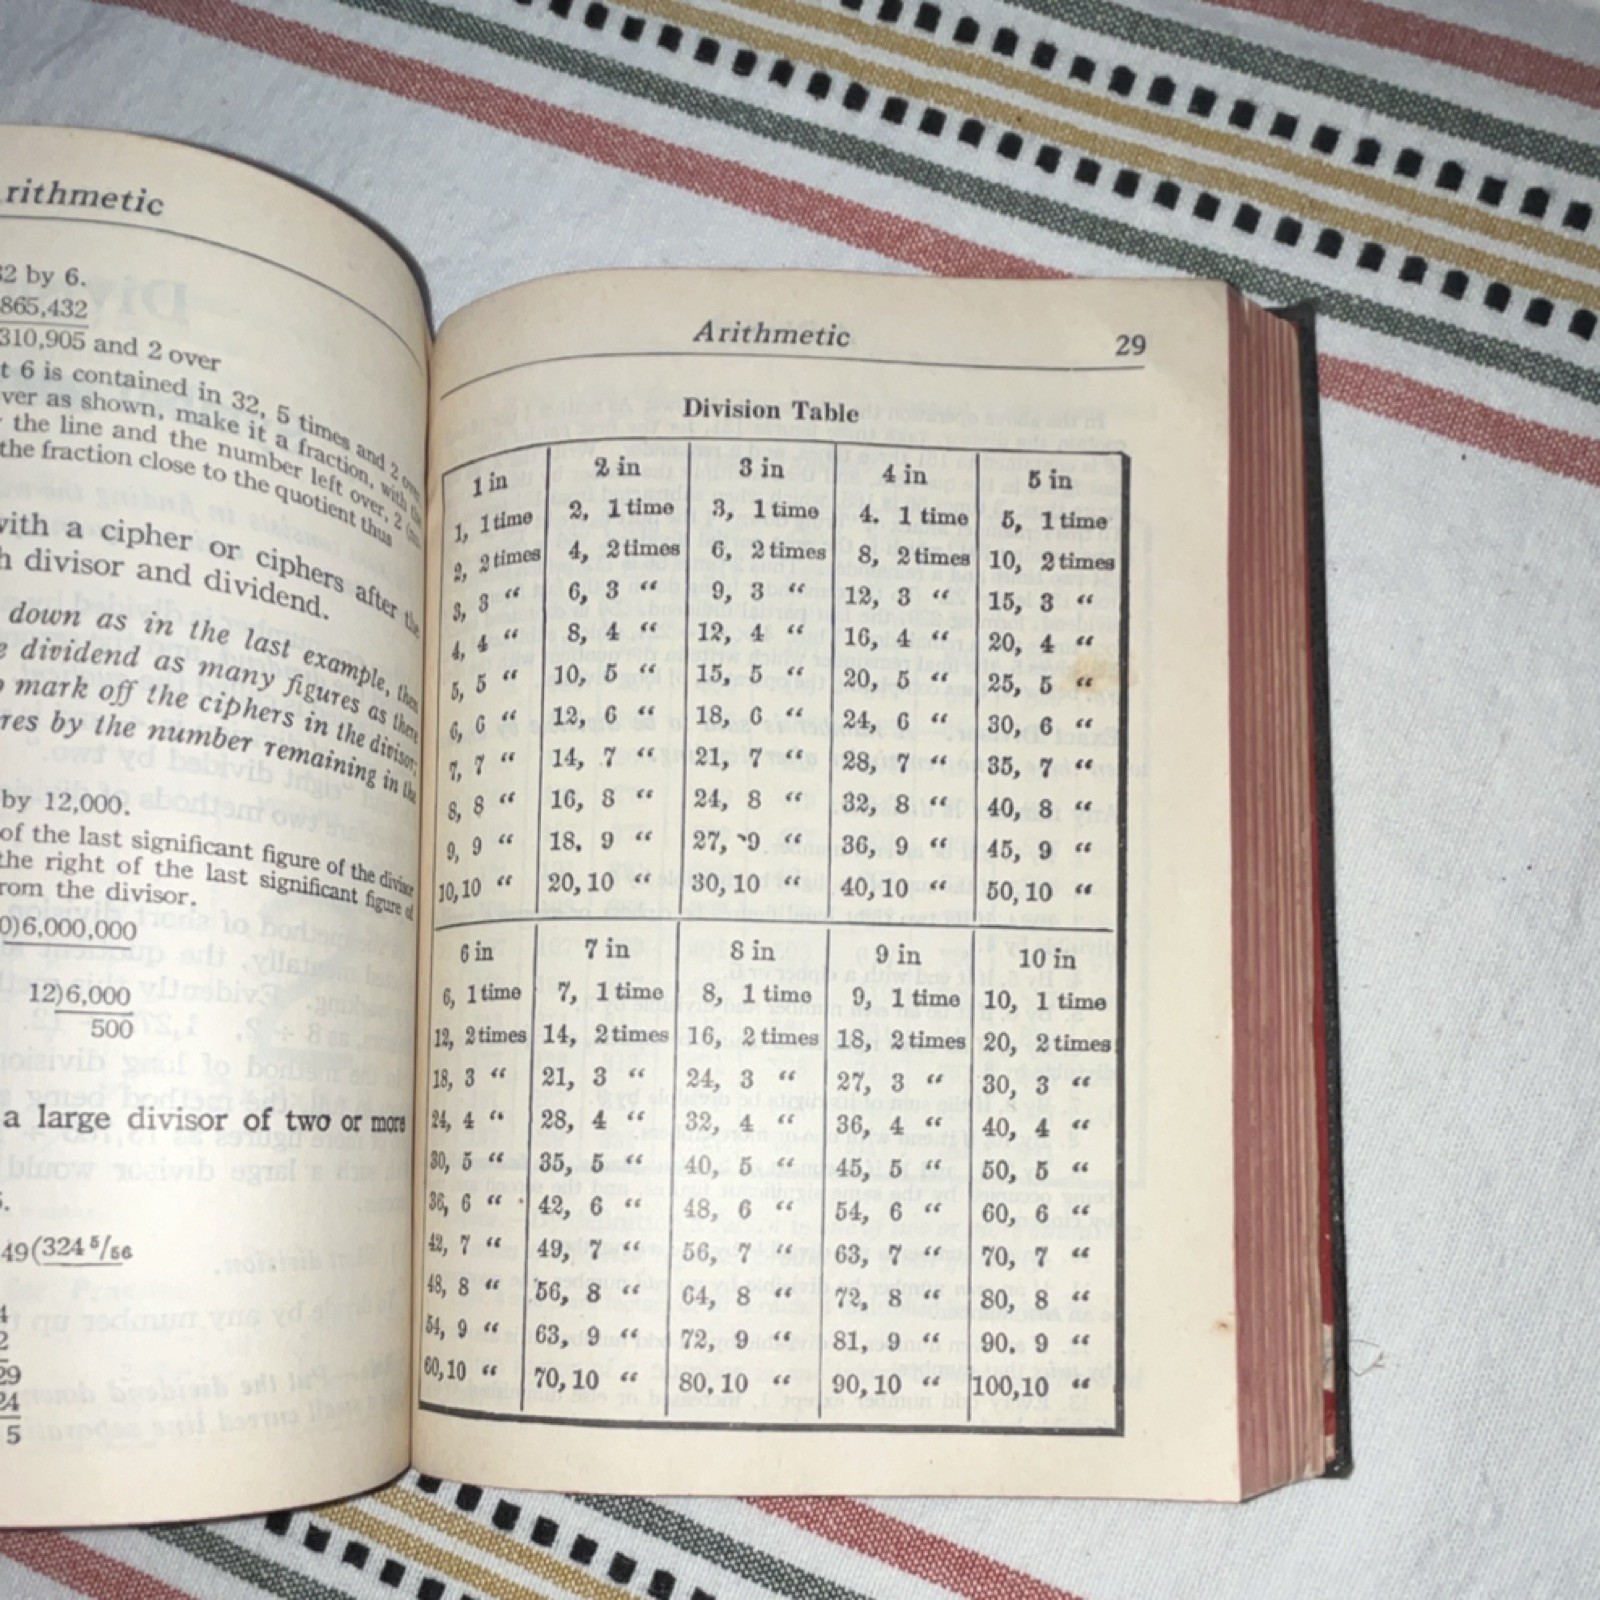 rithmetic
32 by 6.
865,432
310,905 and 2 over
t 6 is contained in 32, 5 times and 2 over
ver as shown, make it a fraction, with the
the line and the number left over, 2
the fraction close to the quotient thus
with a cipher or ciphers after the
h divisor and dividend.
down as in the last example, then
e dividend as many figures as there
o mark off the ciphers in the divisor;
res by the number remaining in the
by 12,000.
of the last significant figure of the divisor
the right of the last significant figure of
rom the divisor.
0)6,000,000
12)6,000
500
a large divisor of two or more
49(324 5/56
4
2
29
24
5
Arithmetic 29
Division Table
1 in 2 in 3 in 4 in 5 in
1, 1 time 2, 1 time 3, 1 time 4. 1 time 5, 1 time
2, 2 times 4, 2 times 6, 2 times 8, 2 times 10, 2 times
3, 3 “ 6, 3 “ 9, 3 “ 12, 3 “ 15, 3 “
4, 4 “ 8, 4 “ 12, 4 “ 16, 4 “ 20, 4 “
5, 5 “ 10, 5 “ 15, 5 “ 20, 5 “ 25, 5 “
6, 6 “ 12, 6 “ 18, 6 “ 24, 6 “ 30, 6 “
7, 7 “ 14, 7 “ 21, 7 “ 28, 7 “ 35, 7 “
8, 8 “ 16, 8 “ 24, 8 “ 32, 8 “ 40, 8 “
9, 9 “ 18. 9 “ 27, 9 “ 36, 9 “ 45, 9 “
10, 10 “ 20, 10 “ 30, 10 “ 40, 10 “ 50, 10 “
6 in 7 in 8 in 9 in 10 in
6, 1 time 7, 1 time 8, 1 time 9, 1 time 10, 1 time
12, 2 times 14, 2 times 16, 2 times 18, 2 times 20, 2 times
18, 3 “ 21, 3 “ 24, 3 “ 27, 3 “ 30, 3 “
24, 4 “ 28, 4 “ 32, 4 “ 36, 4 “ 40, 4 “
30, 5 “ 35, 5 “ 40, 5 “ 45, 5 “ 50, 5 “
36, 6 “ 42, 6 “ 48, 6 “ 54, 6 “ 60, 6 “
42, 7 “ 49, 7 “ 56, 7 “ 63, 7 “ 70, 7 “
48, 8 “ 56, 8 “ 64, 8 “ 72, 8 “ 80, 8 “
54, 9 “ 63, 9 “ 72, 9 “ 81, 9 “ 90. 9 “
60, 10 “ 70, 10 “ 80, 10 “ 90, 10 “ 100, 10 “